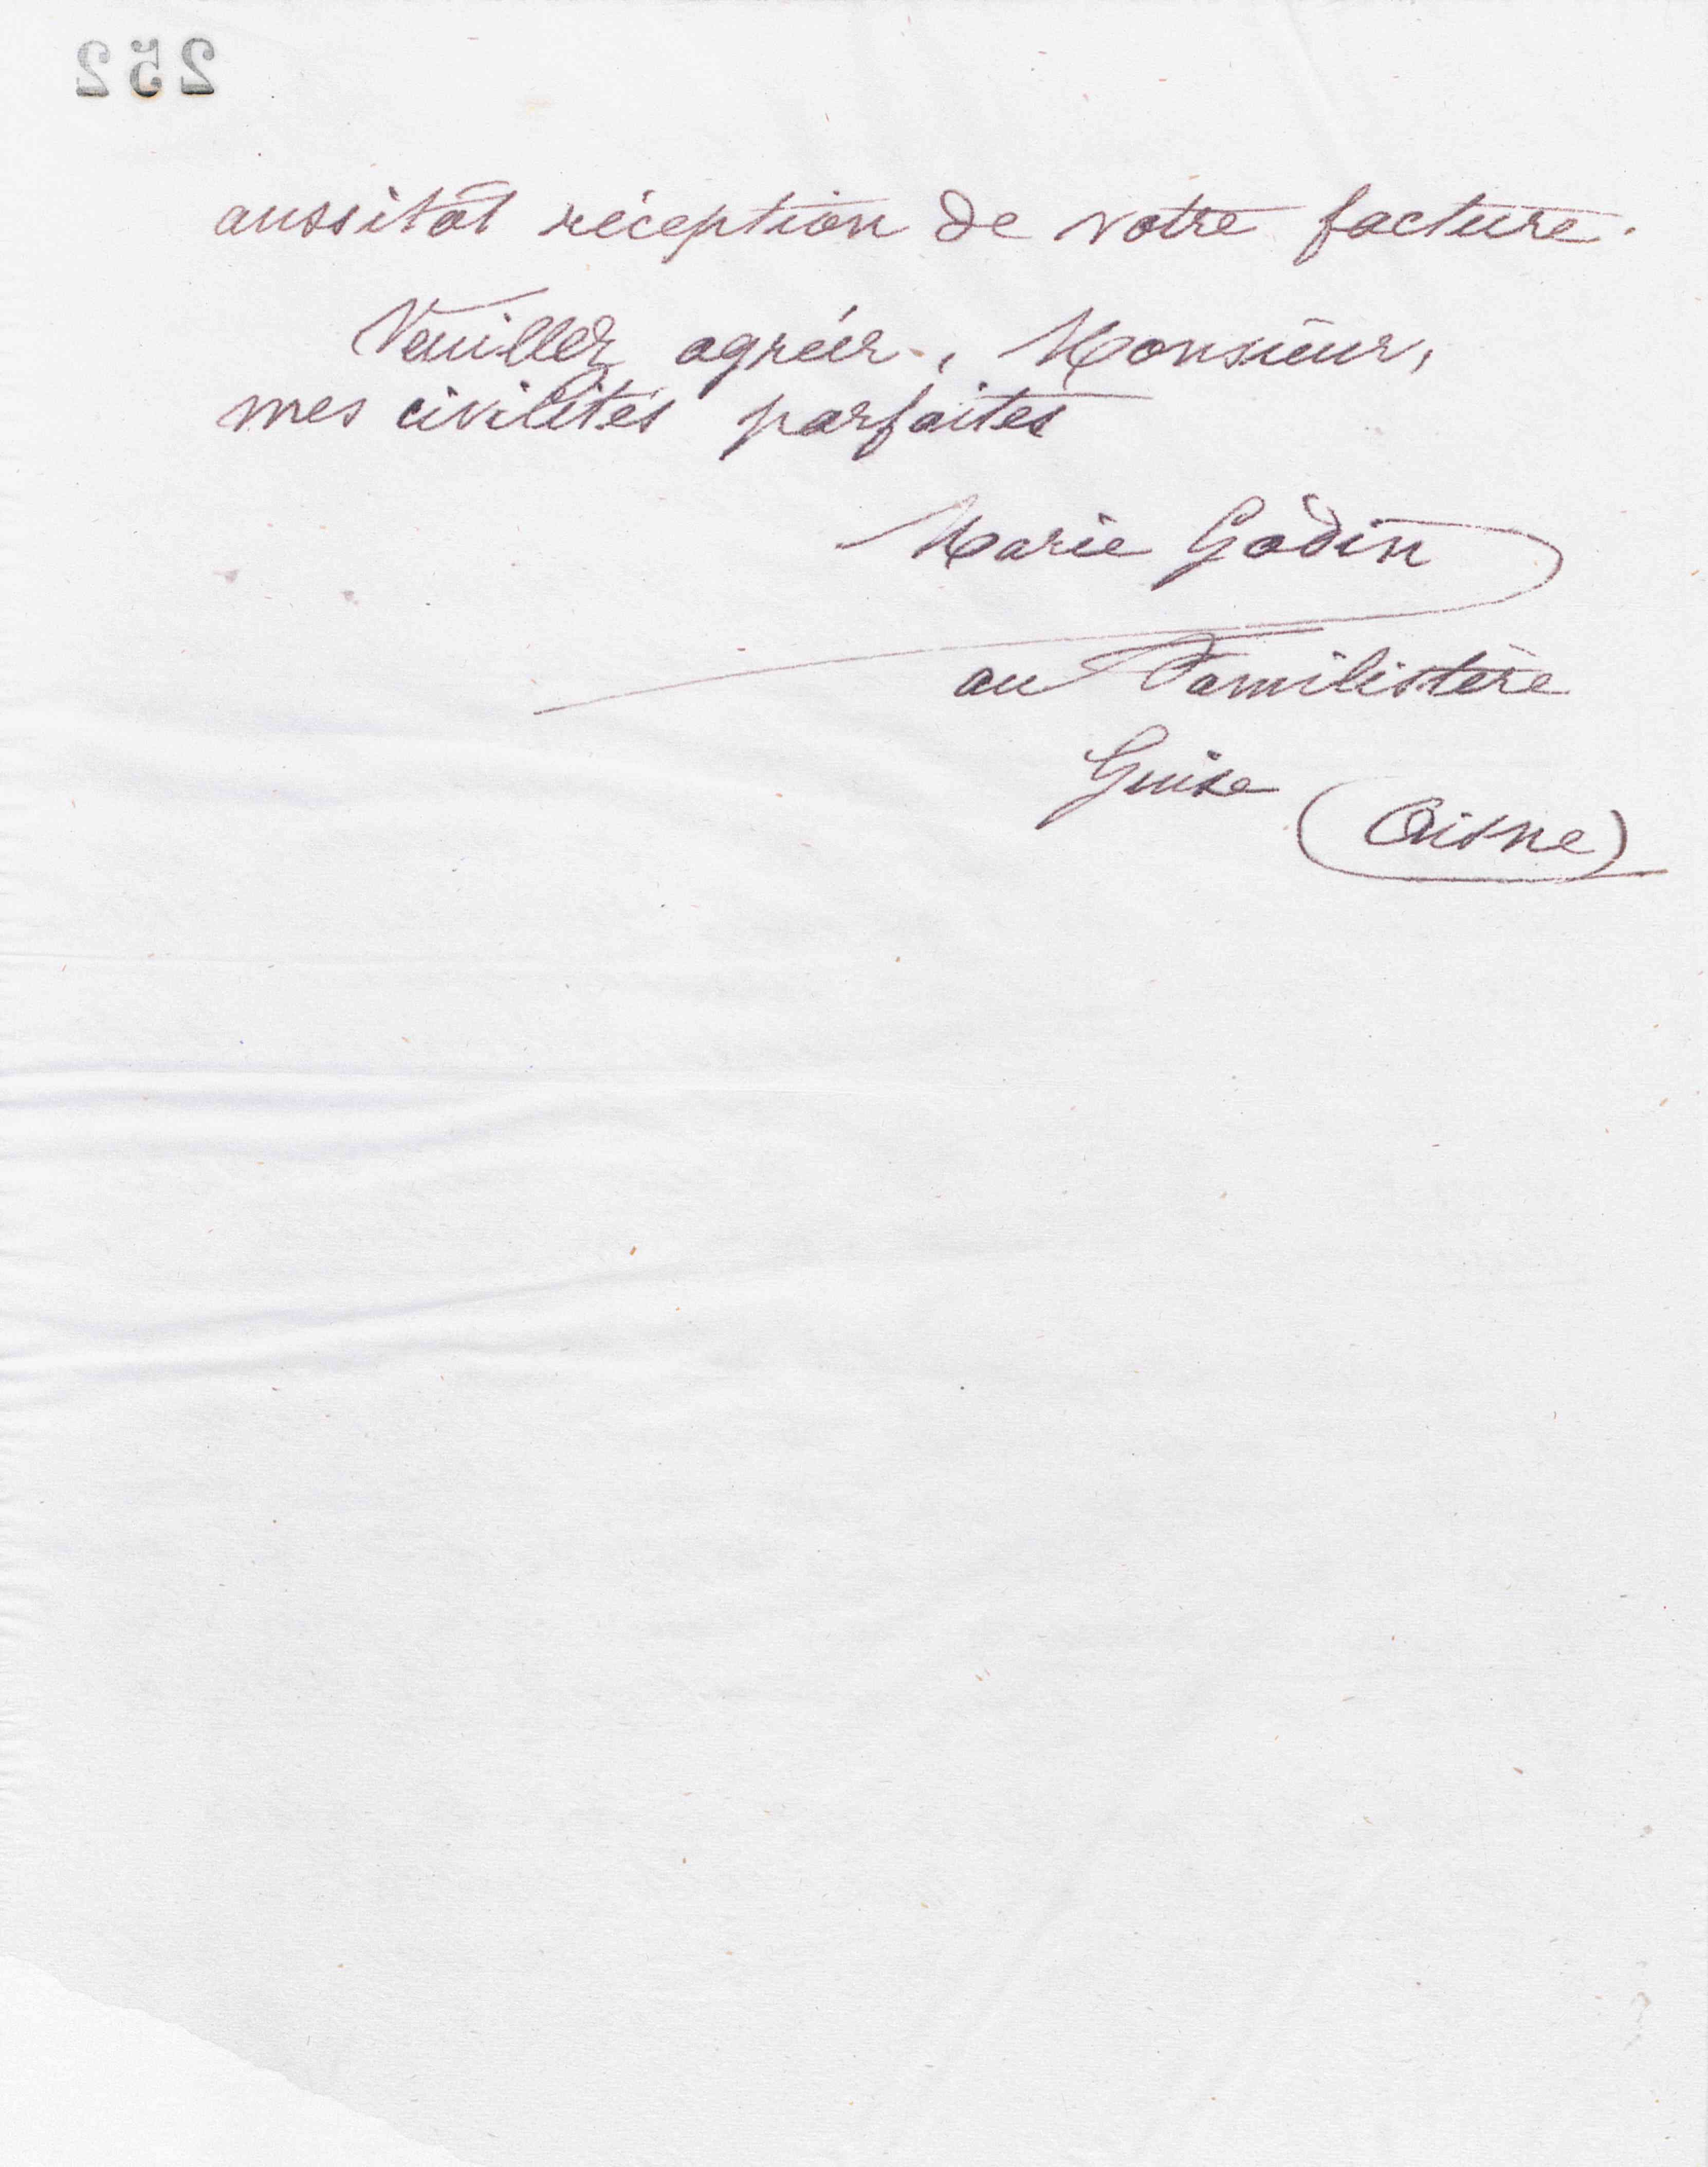 252
aussitôt réception de votre facture.
Veuillez agréer, Monsieur,
mes civilités parfaites
Marie Godin
au Familistère
Guise
(Aisne)